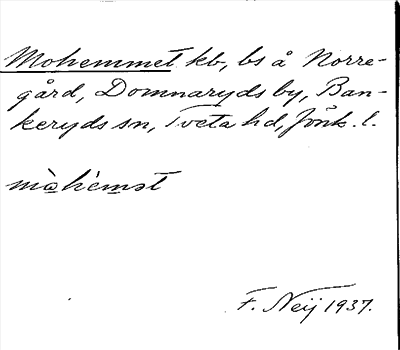 Mohemmet kb, bs å Norre-
gård, Domnaryds by, Ban-
keryds sn, Tveta hd, Jönk. l.
mòhèmət
F. Neij 1937.